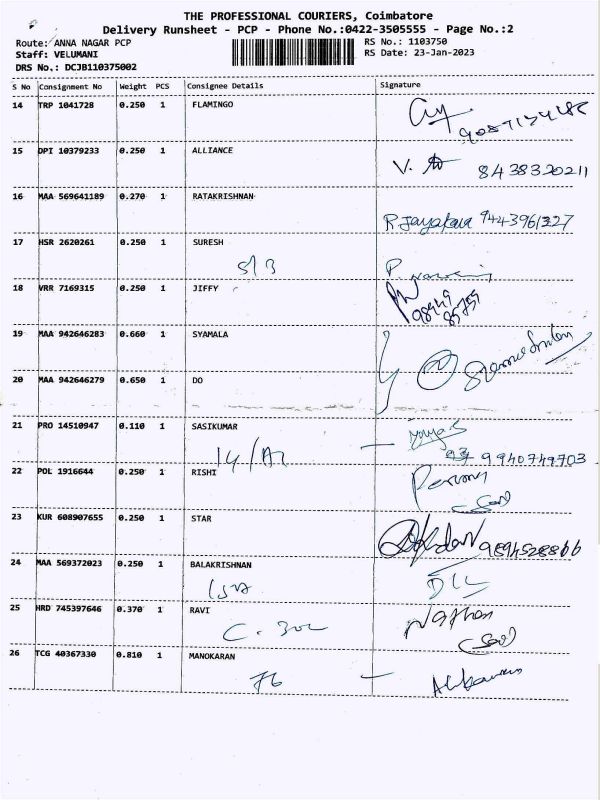 THE PROFESSIONAL COURIERS, Coimbatore
Delivery Runsheet - PCP - Phone No.:0422-3505555 - Page No.:2
Route: ANNA NAGAR PCP
RS No.: 1103750
Staff: VELUMANI
RS Date: 23-Jan-2023
DRS No.: DCJB110375002
S No Consignment No Weight PCS Consignee Details Signature
14 TRP 1041728 0.250 1 FLAMINGO
15 DPI 10379233 0.250 1 ALLIANCE
V. 8438320211
16 MAA 569641189 0.270 1 RATAKRISHNAN
9443961327
17 HSR 2620261 0.250 1 SURESH
S/3
18 VRR 7169315 0.250 1 JIFFY
19 MAA 942646283 0.660 1 SYAMALA
20 MAA 942646279 0.650 1 DO
21 PRO 14510947 0.110 1 SASIKUMAR
9940749703
22 POL 1916644 0.250 1 RISHI
23 KUR 608907655 0.250 1 STAR
9894528866
24 MAA 569372023 0.250 1 BALAKRISHNAN
25 HRD 745397646 0.370 1 RAVI
C. 302
Nathan
26 TCG 40367330 0.810 1 MANOKARAN
76